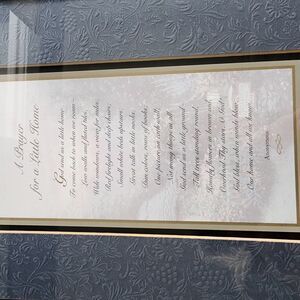 A Prayer
for a Little Home
God send us a little home
To come back to when we roam—
Low walls and fluted tiles,
Wide windows, a view for miles;
Red firelight and deep chairs;
Small white beds upstairs;
Great talk in little nooks;
Dim colors, rows of books;
One picture on each wall;
Not many things at all.
God send us a little ground,
Tall trees standing round,
Homely flowers in brown sod,
Overhead, Thy stars, O God!
God bless, when winds blow,
Our home and all we know.
Anonymous